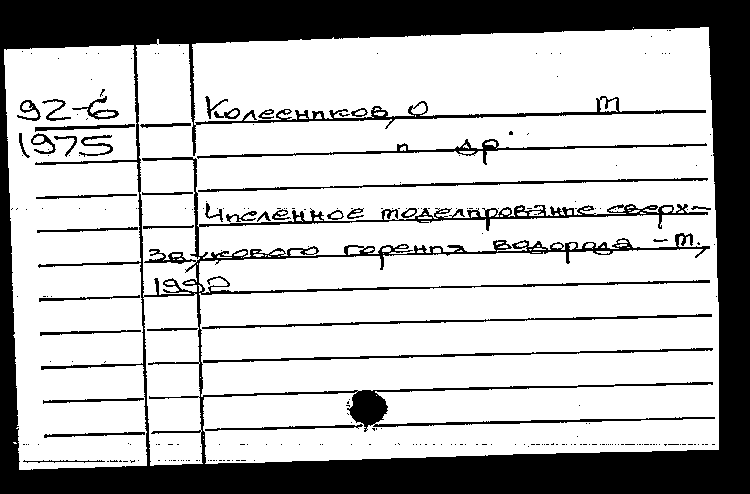 92-6
1975
Колесников, О М
и др.
Численное моделирование сверх-
звукового горения водорода. - М.,
1992